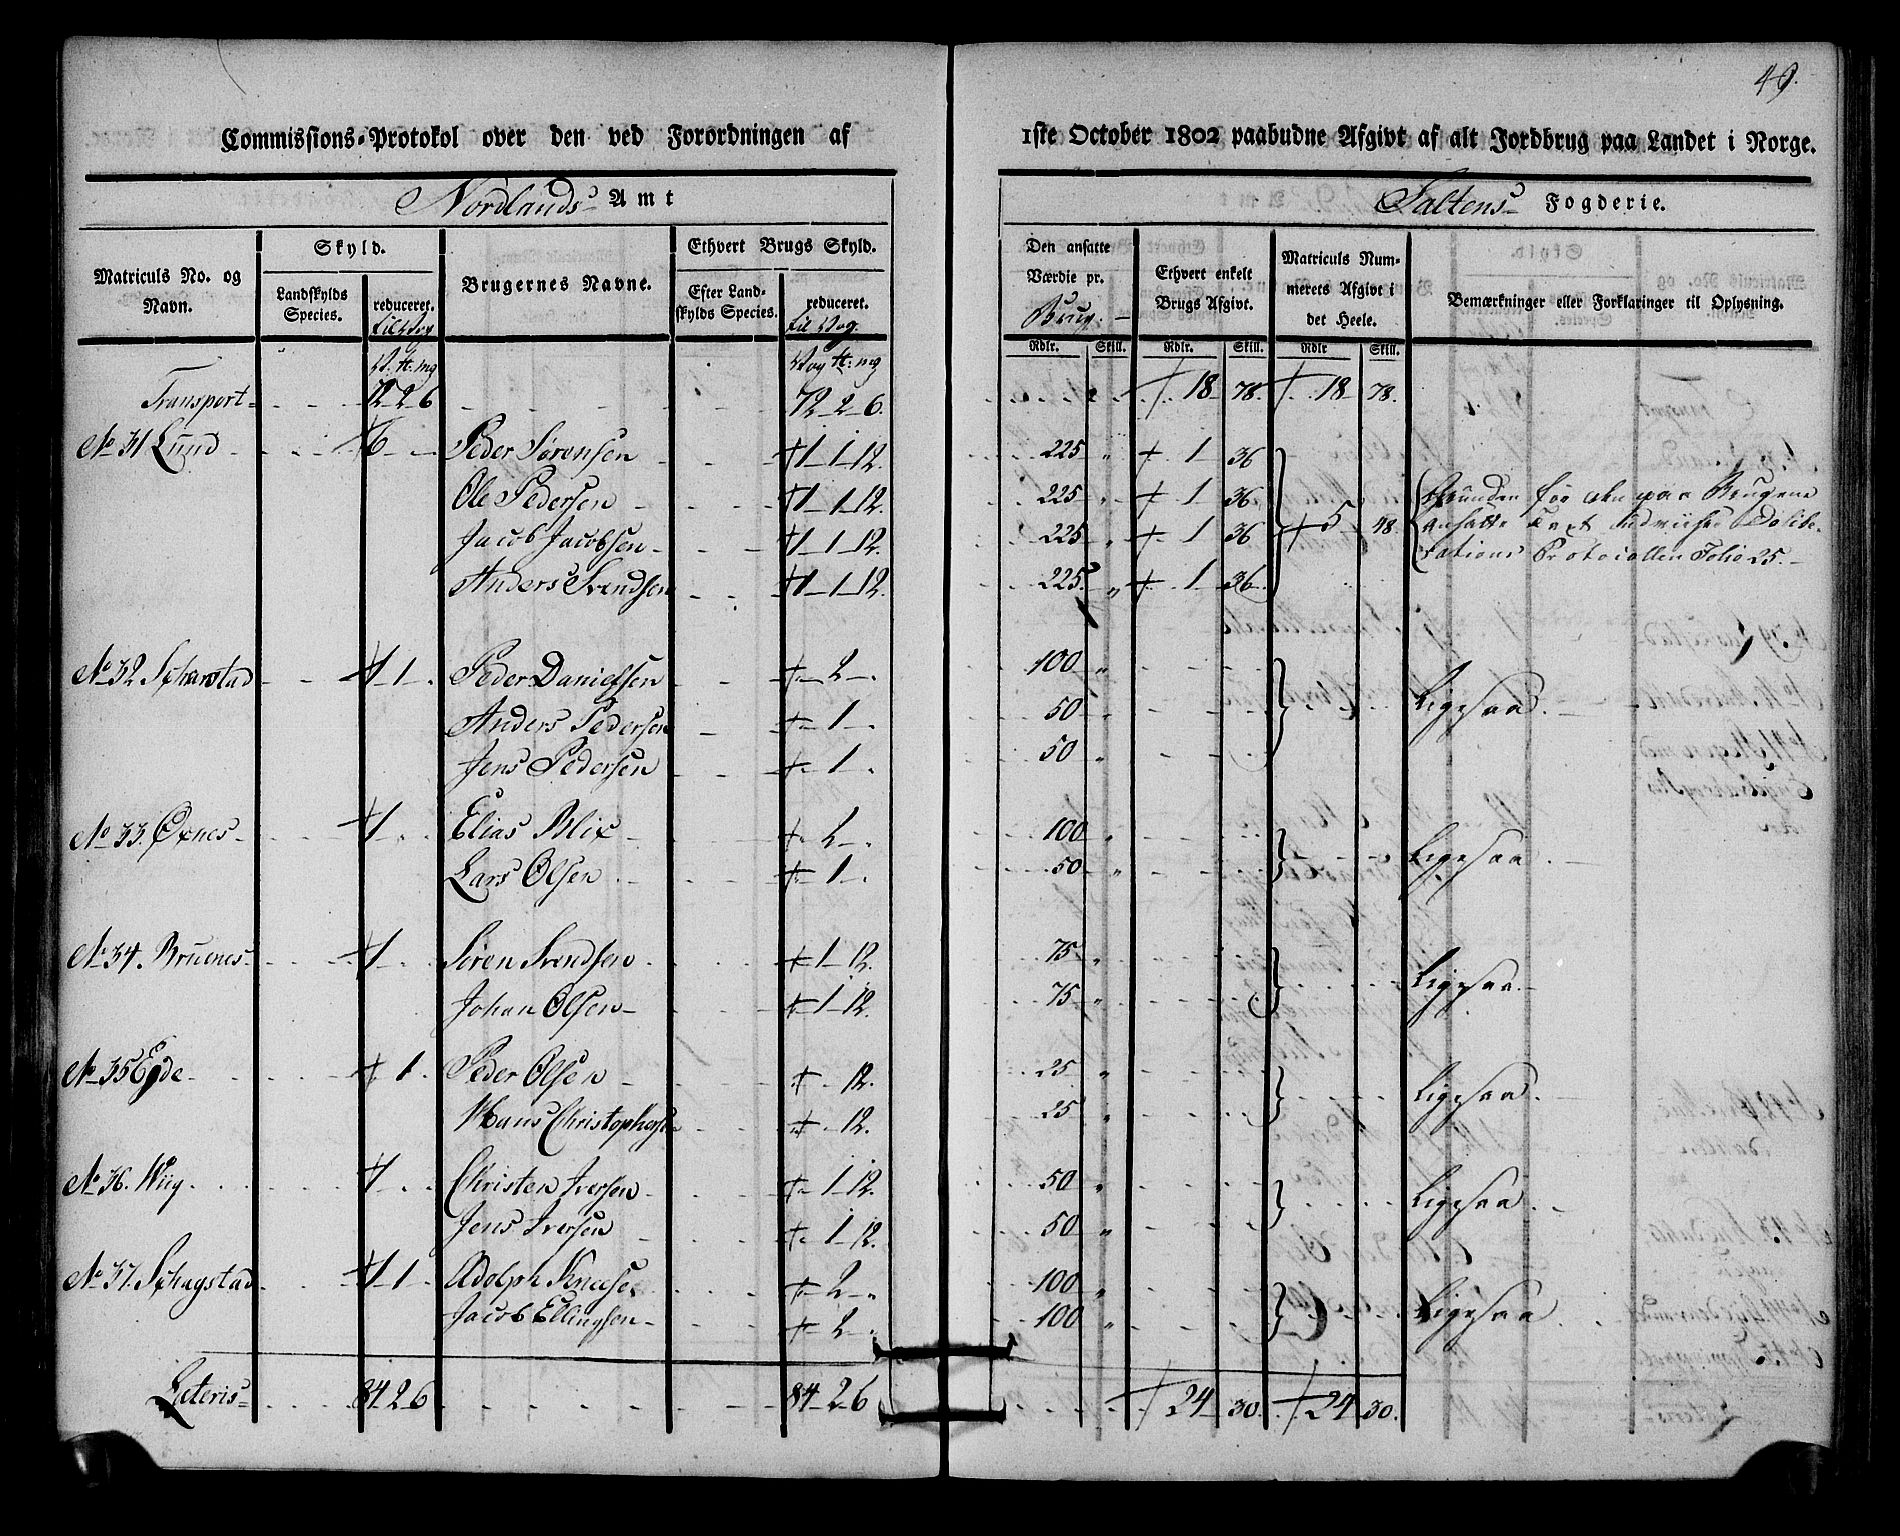 49.
Commissions-Protokol over den ved Forordningen af 1ste October 1802 paabudne Afgivt af alt Jordbrug paa Landet i Norge.
Nordlands Amt
Saltens Fogderie.
Matriculs No. og Navn.
Skyld.
Landskylds Species.
reduceret. til Vog
Brugernes Navne.
Ethvert Brugs Skyld.
Efter Landskylds Species.
reduceret. til Vog.
Den ansatte Værdie pr. Brug.
Ethvert enkelt Brugs Afgivt.
Matriculs Nummerets Afgivt i det Heele.
Bemærkninger eller Forklaringer til Oplysning.
Rdlr. Skill. Rdlr. Skill. Rdlr Skill.
V. ℔. mg Vog ℔. mg
Transport 72 2 6 72 2 6. 18 78. 18 78.
No 31 Lund 6 Peder Sørensen 1 1 12. 225 " 1 36
Ole Pedersen 1 1 12. 225 " 1 36 Grunden for den paa Brugene
Jacob Jacobsen 1 1 12. 225 " 1 36 5 48. ansatte Taxt udviiser Delibe-
Anders Svendsen 1 1 12. 225. " 1 36. rations Protocollen Folio 25.
No 32 Scharstad 1 1. Peder Danielsen 2 100 " Ligesaa.
Anders Pedersen 1 50 "
Jens Pedersen 1 50 "
No 33. Oxnes 1 Elias Blix 2 100 " Ligesaa.
Lars Olsen 1 50 "
No 34. Bruenes 1 Søren Svendsen 1 12. 75 " Ligesaa.
Johan Olsen 1 12. 75 "
No 35 Eyde 1. Peder Olsen 12. 25 " Ligesaa.
Hans Christophersen 12. 25 "
No 36. Wiig 1 Christen Iversen 1 12. 50 " Ligesaa.
Jens Iversen 1 12. 50 "
No 37. Schagstad 1 1 Adolph 2 100 " Ligesaa.
Jacob Ellingsen 2 100 "
Lateris 84 2 6 84 2 6 24 30. 24 30.